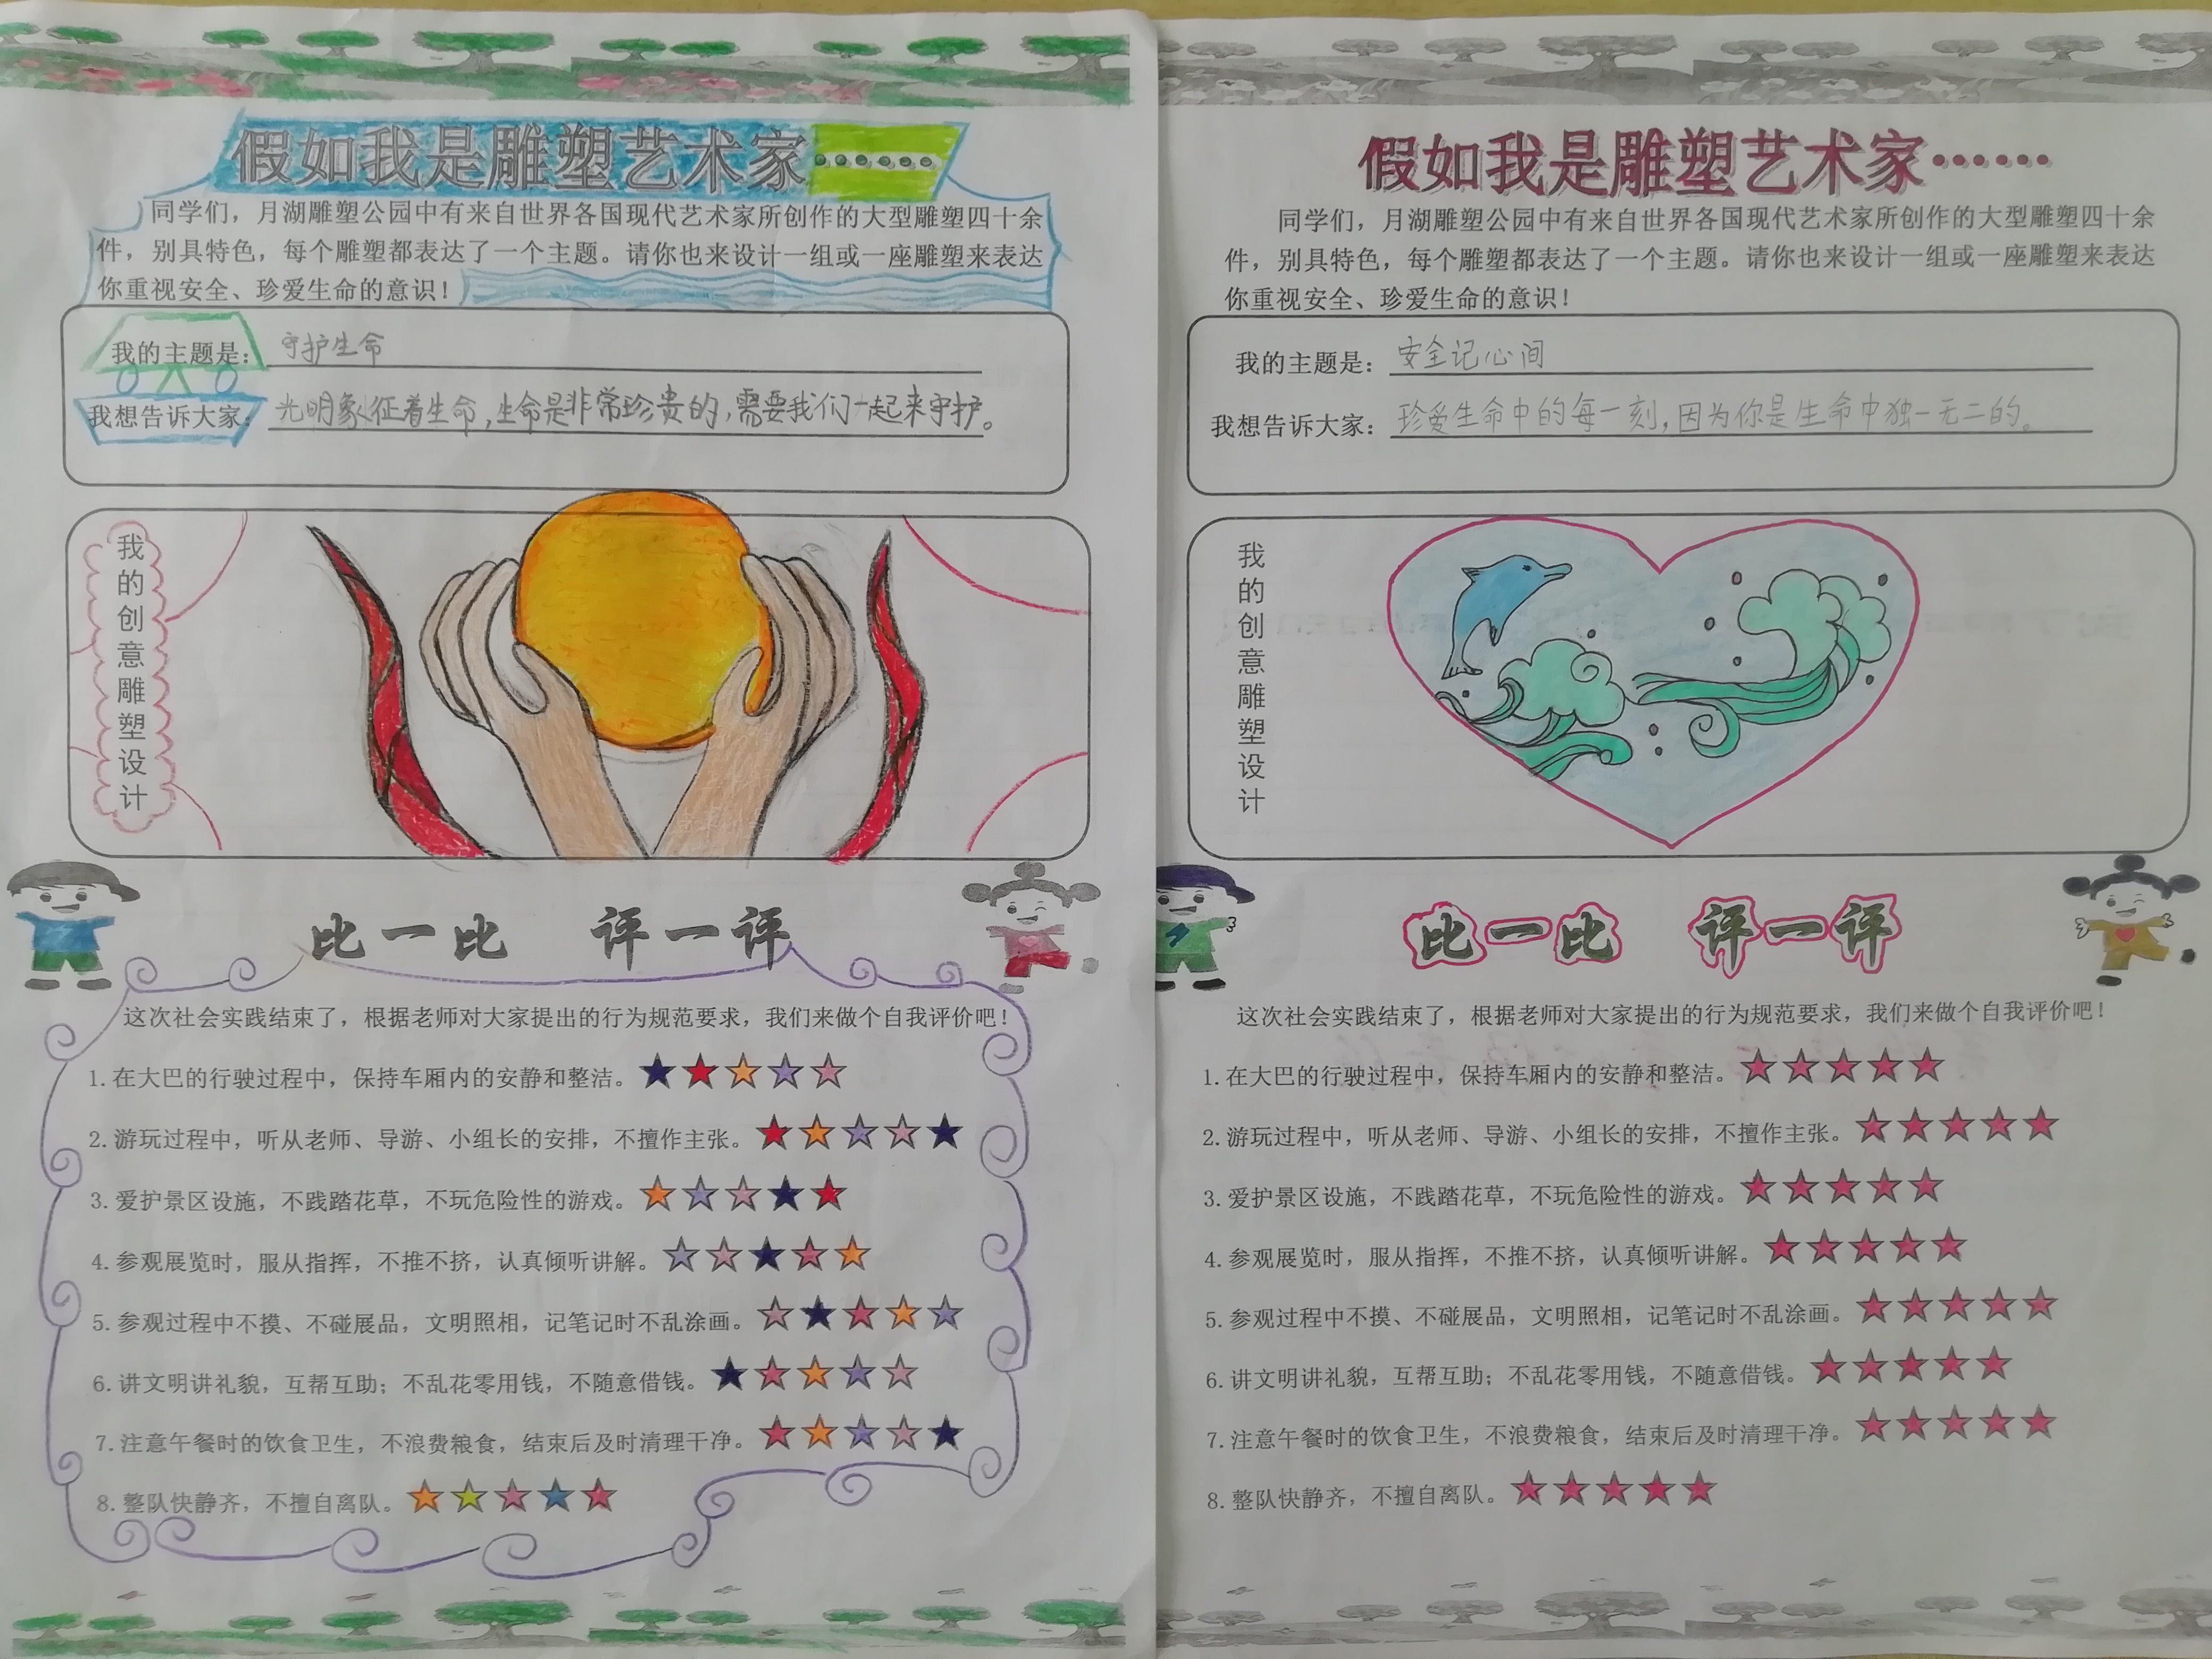 假如我是雕塑艺术家……
同学们，月湖雕塑公园中有来自世界各国现代艺术家所创作的大型雕塑四十余
件，别具特色，每个雕塑都表达了一个主题。请你也来设计一组或一座雕塑来表达
你重视安全、珍爱生命的意识！
我的主题是：守护生命
我想告诉大家：光明象征着生命，生命是非常珍贵的，需要我们一起来守护。
我的创意雕塑设计
比一比 评一评
这次社会实践结束了，根据老师对大家提出的行为规范要求，我们来做个自我评价吧！
1.在大巴的行驶过程中，保持车厢内的安静和整洁。
2.游玩过程中，听从老师、导游、小组长的安排，不擅作主张。
3.爱护景区设施，不践踏花草，不玩危险性的游戏。
4.参观展览时，服从指挥，不推不挤，认真倾听讲解。
5.参观过程中不摸、不碰展品，文明照相，记笔记时不乱涂画。
6.讲文明讲礼貌，互帮互助；不乱花零用钱，不随意借钱。
7.注意午餐时的饮食卫生，不浪费粮食，结束后及时清理干净。
8.整队快静齐，不擅自离队。
假如我是雕塑艺术家……
同学们，月湖雕塑公园中有来自世界各国现代艺术家所创作的大型雕塑四十余
件，别具特色，每个雕塑都表达了一个主题。请你也来设计一组或一座雕塑来表达
你重视安全、珍爱生命的意识！
我的主题是：安全记心间
我想告诉大家：珍爱生命中的每一刻，因为你是生命中独一无二的。
我的创意雕塑设计
比一比 评一评
这次社会实践结束了，根据老师对大家提出的行为规范要求，我们来做个自我评价吧！
1.在大巴的行驶过程中，保持车厢内的安静和整洁。
2.游玩过程中，听从老师、导游、小组长的安排，不擅作主张。
3.爱护景区设施，不践踏花草，不玩危险性的游戏。
4.参观展览时，服从指挥，不推不挤，认真倾听讲解。
5.参观过程中不摸、不碰展品，文明照相，记笔记时不乱涂画。
6.讲文明讲礼貌，互帮互助；不乱花零用钱，不随意借钱。
7.注意午餐时的饮食卫生，不浪费粮食，结束后及时清理干净。
8.整队快静齐，不擅自离队。